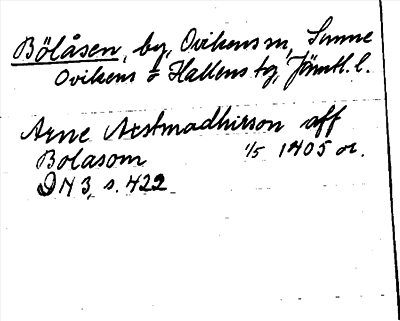 Bölåsen, by, Ovikens sn, Sunne
Ovikens o Hallens tg, Jämtl. l.
Arne Æstmadhirson aff
Bolasom 1/5 1405 or.
DN 3, s. 422